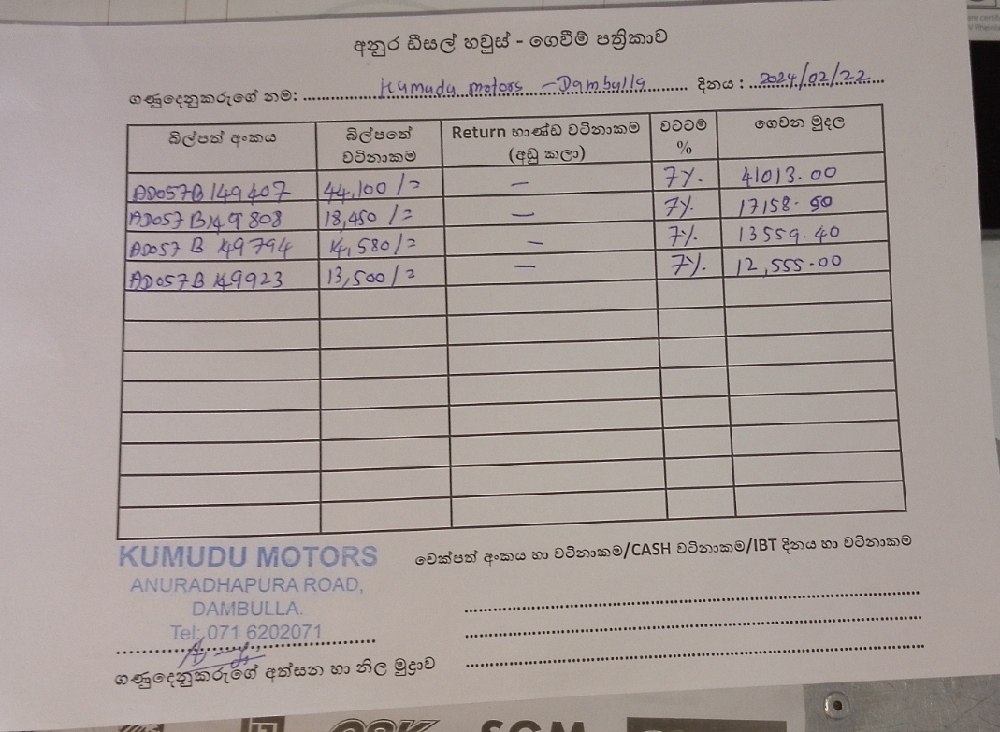 අනුර ඩීසල් හවුස් - ගෙවීම් පත්‍රිකාව
ගණුදෙනුකරුගේ නම: Kumudu motors - Dambulla දිනය : 2024/02/22
බිල්පත් අංකය බිල්පතේ වටිනාකම Return භාණ්ඩ වටිනාකම (අඩු කලා) වට්ටම් % ගෙවන මුදල
AD057B149407 44,100/= — 7% 41013.00
AD057B149808 18,450/= — 7% 17158.50
AD057B149794 14,580/= — 7% 13559.40
AD057B149923 13,500/= — 7% 12,555.00
KUMUDU MOTORS
ANURADHAPURA ROAD,
DAMBULLA.
Tel: 071 6202071
චෙක්පත් අංකය හා වටිනාකම/CASH වටිනාකම/IBT දිනය හා වටිනාකම
ගණුදෙනුකරුගේ අත්සන හා නිල මුද්‍රාව